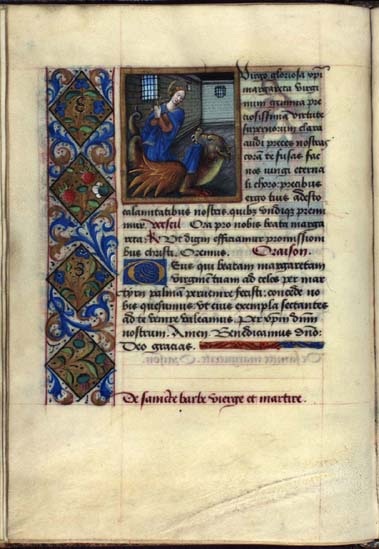 Virgo gloriosa xpi
margareta virgi
num gemma pre
ciosissima virtute
supernorum clara
audi preces nostras
corā te fusas fac
nos iungi eterna
li choro: precibus
ergo tuis adesto
calamitatibus nostris quibꝯ vndiqꝫ premi
mur versicl Ora pro nobis beata marga
reta. R Vt digni efficiamur promissioni
bus christi. Oremus. Oraison.
Deus qui beatam margaretam
virginem tuam ad celos per mar
tyrij palmā peruenire fecisti: concede no
bis quesumus. vt eius exempla sectantes
ad te venire valeamus. Per xpm dnm
nostrum. Amen Benedicamus dnō.
Deo gracias.
De saincte barbe vierge et martire.